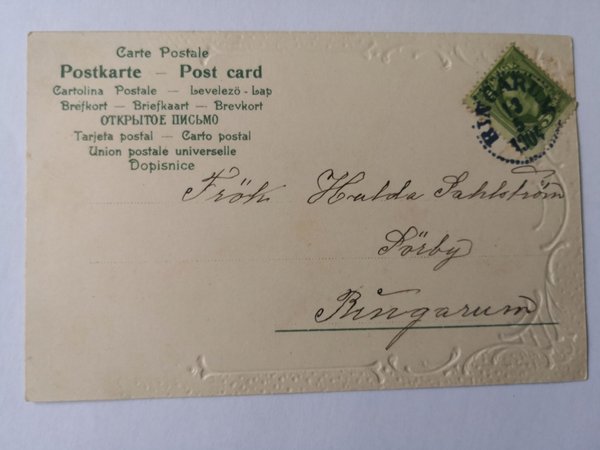 Carte Postale
Postkarte — Post card
Cartolina Postale — Levelezö-Lap
Brefkort — Briefkaart — Brevkort
ОТКРЫТОЕ ПИСЬМО
Tarjeta postal — Carto postal
Union postale universelle
Dopisnice
RINGARUM
3
1904
5
Frök Hulda Sahlström
Sörby
Ringarum